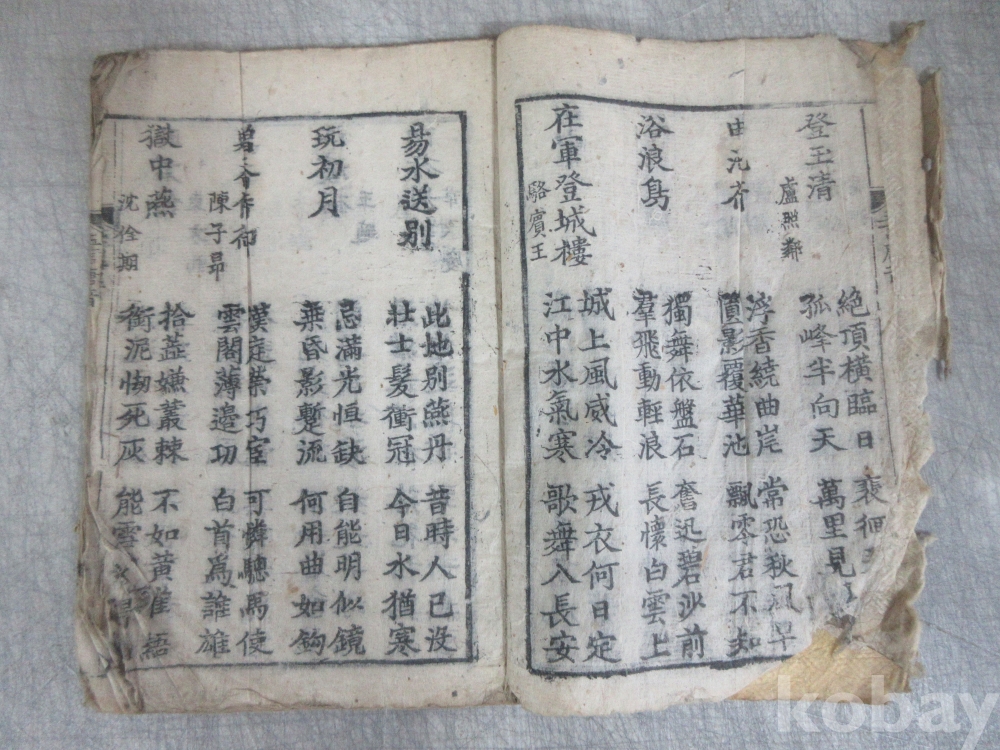 登玉清
盧照鄰
絶頂橫臨日
孤峰半向天
裴徊
萬里見
浮香繞曲岸
圓影覆華池
常恐秋風早
飄零君不知
浴浪鳥
獨舞依盤石
羣飛動輕浪
奮迅碧沙前
長懷白雲上
在軍登城樓
駱賓王
城上風威冷
江中水氣寒
戎衣何日定
歌舞入長安
易水送別
此地別燕丹
壯士髮衝冠
昔時人已没
今日水猶寒
玩初月
忌滿光恒缺
乘昏影暫流
自能明似鏡
何用曲如鉤
陳子昻
漢庭榮巧宦
雲閣薄邊功
可憐驄馬使
白首爲誰雄
獄中燕
沈佺期
拾蘂嫌叢棘
衘泥怕死灰
不如黃雀語
能雪
kobay